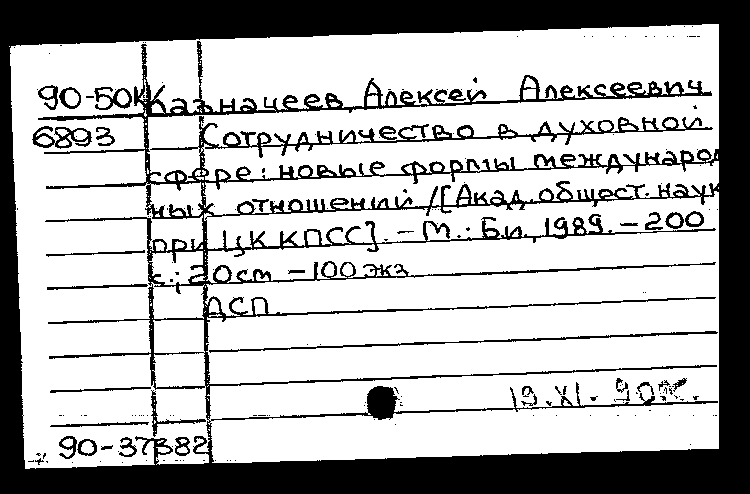 90-50К Казначеев, Алексей Алексеевич
6893 Сотрудничество в духовной
сфере: новые формы международ
ных отношений /[Акад. общест. наук
при ЦК КПСС]. – М.: Би, 1989. – 200
с.; 20 cm – 100 экз
ДСП.
19.XI.90
90-37382